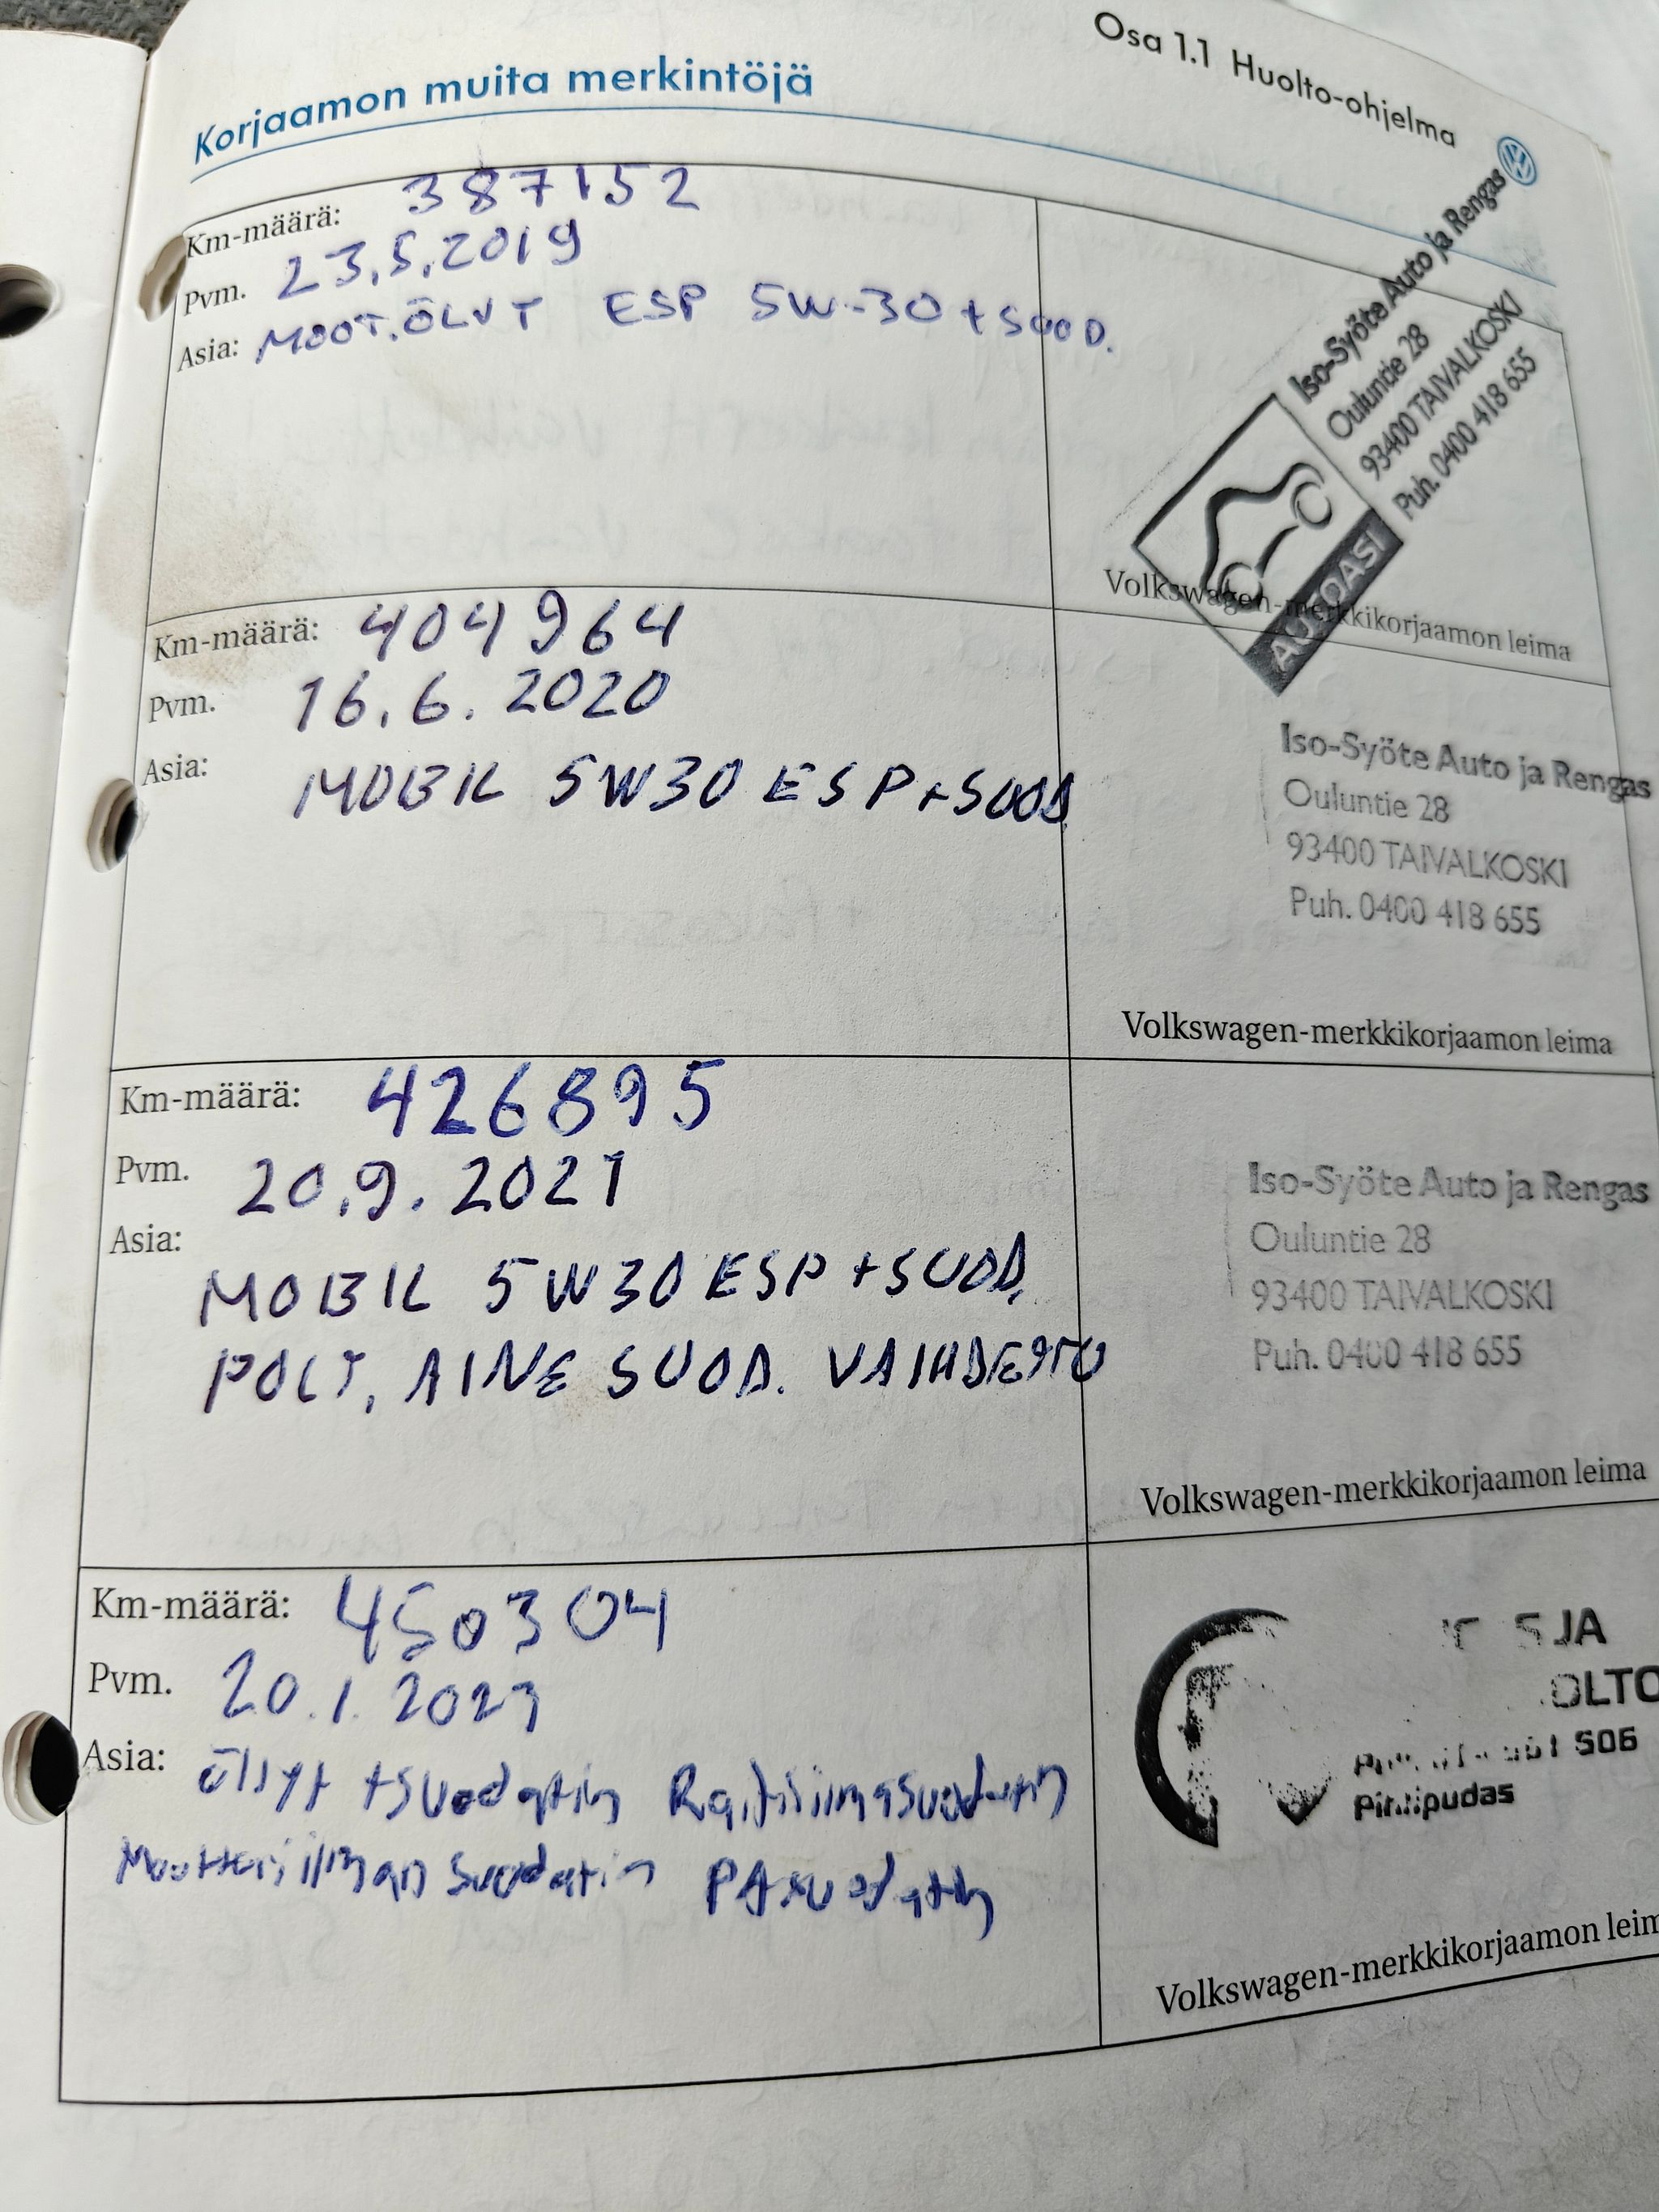 Osa 1.1 Huolto-ohjelma
Korjaamon muita merkintöjä
Km-määrä: 387152
Pvm. 23.5.2019
Asia: MOOT.ÖLVT ESP 5W-30 + SUOD.
Iso-Syöte Auto ja Rengas
Ouluntie 28
93400 TAIVALKOSKI
Puh. 0400 418 655
AUTOASI
Volkswagen-merkkikorjaamon leima
Km-määrä: 404964
Pvm. 16.6.2020
Asia: MOBIL 5W30 ESP+SUOD
Iso-Syöte Auto ja Rengas
Ouluntie 28
93400 TAIVALKOSKI
Puh. 0400 418 655
Volkswagen-merkkikorjaamon leima
Km-määrä: 426895
Pvm. 20.9.2021
Asia:
MOBIL 5W30 ESP +SUOD.
POLT. AINE SUOD. VAIHDETTU
Iso-Syöte Auto ja Rengas
Ouluntie 28
93400 TAIVALKOSKI
Puh. 0400 418 655
Volkswagen-merkkikorjaamon leima
Km-määrä: 450304
Pvm. 20.1.2023
Asia: öljyt +suodatin Raitisilmasuodatin
Moottoriilman suodatin PAsuodatin
JA
OLTO
506
Pihtipudas
Volkswagen-merkkikorjaamon leim